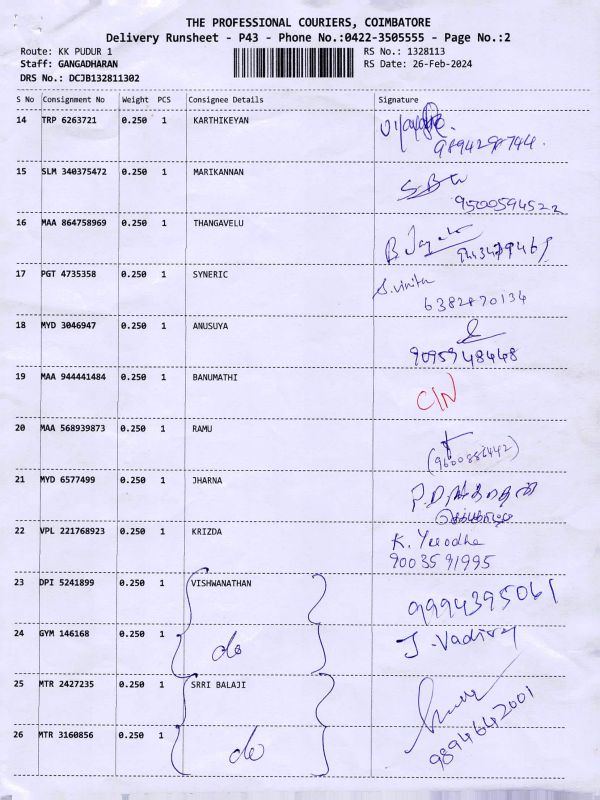 THE PROFESSIONAL COURIERS, COIMBATORE
Delivery Runsheet - P43 - Phone No.:0422-3505555 - Page No.:2
Route: KK PUDUR 1 RS No.: 1328113
Staff: GANGADHARAN RS Date: 26-Feb-2024
DRS No.: DCJB132811302
S No Consignment No Weight PCS Consignee Details Signature
14 TRP 6263721 0.250 1 KARTHIKEYAN
15 SLM 340375472 0.250 1 MARIKANNAN
9500594522
16 MAA 864758969 0.250 1 THANGAVELU
17 PGT 4735358 0.250 1 SYNERIC S. vinitu
6382870134
18 MYD 3046947 0.250 1 ANUSUYA
9095948448
19 MAA 944441484 0.250 1 BANUMATHI C/N
20 MAA 568939873 0.250 1 RAMU
21 MYD 6577499 0.250 1 JHARNA
22 VPL 221768923 0.250 1 KRIZDA K. Yesodha
9003591995
23 DPI 5241899 0.250 1 VISHWANATHAN 9994395061
24 GYM 146168 0.250 1 do
25 MTR 2427235 0.250 1 SRRI BALAJI
26 MTR 3160856 0.250 1 do 9894642001